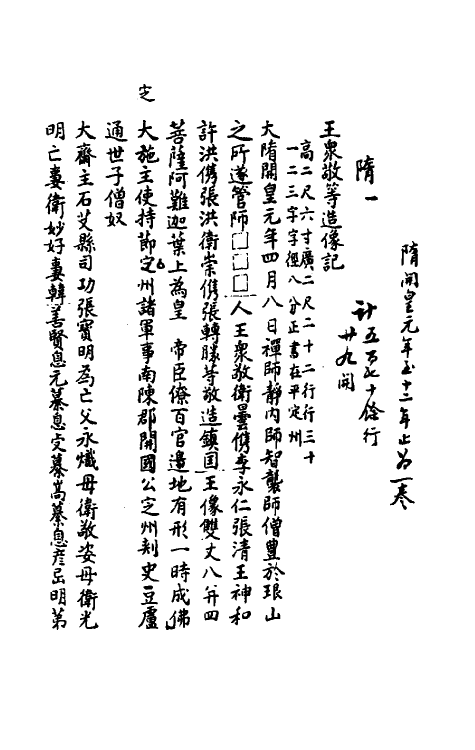 隋開皇元年至十二年止為一卷
計五百七十餘行
廿九開
隋一
王衆敬等造像記
高二尺六寸廣二尺二十二行行三十
一二三字字徑八分正書在平定州
大隋開皇元年四月八日禪師靜內師智襲師僧豊於珢山
之所遂管師□□□人王衆敬衛曇儁李永仁張清王神和
許洪儁張洪衛崇儁張轉勝等敬造鎮国王像雙丈八并四
菩薩阿難迦葉上為皇 帝臣僚百官邊地有形一時成佛
定
大施主使持節定州諸軍事南陳郡開國公定州刺史豆盧
通世子僧奴
大齋主石艾縣司功張寶明為亡父永熾母衛敬姿母衛光
明亡妻衛妙好妻韓善賢息元纂息文纂嵩纂息彦岳明第